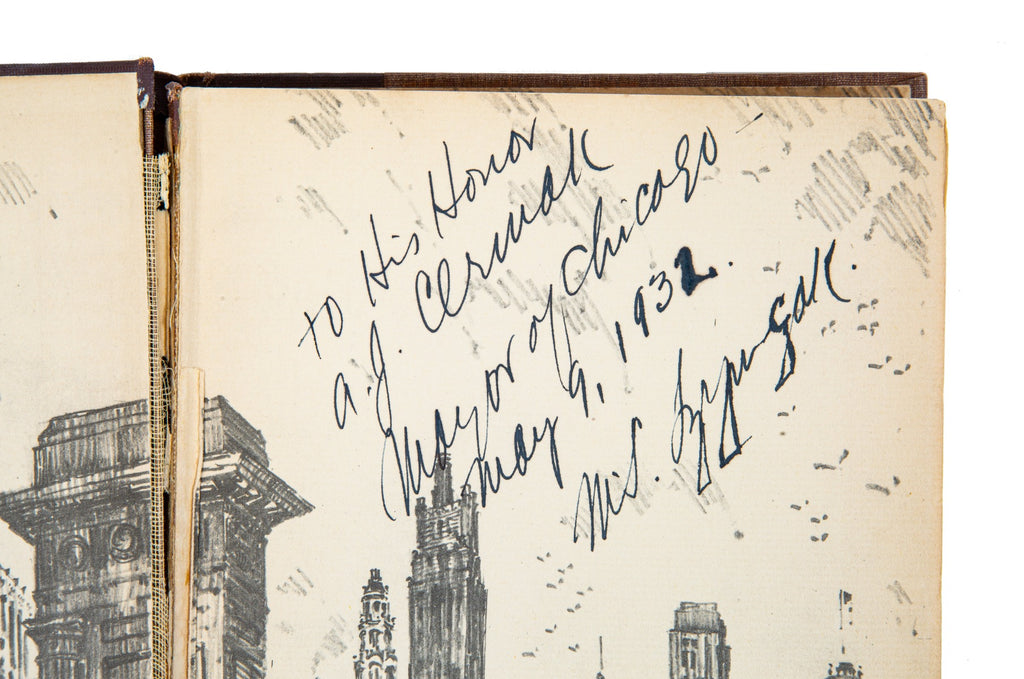 to His Honor
A.J. Cermak
Mayor of Chicago -
May 9, 1932.
M.S. Szymczak.